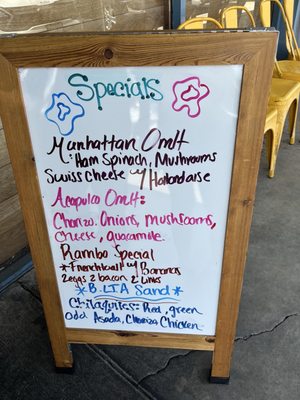 Specials
Manhattan Omlt
Ham Spinach, Mushrooms
Swiss Cheese w/ Hollandaise
Acapulco Omlt:
Chorizo. Onions, mushrooms,
Cheese, Guacamole.
Rambo Special
*Frenchtoast w/ Bananas
2 eggs 2 bacon 2 Links
*B.LTA Sand*
Chilaquiles: Red, green
Asada, Chorizo Chicken